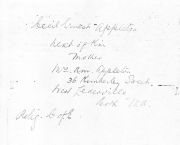 Cecil Ernest Appleton
Next of Kin
Mother
Mrs. Ann. Appleton
36 Kimberley Street
West
Relig. C of E